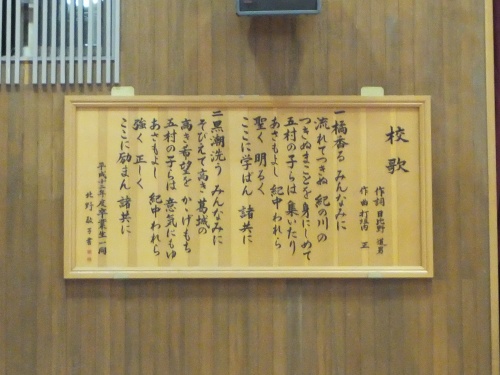 校歌
作詞 日比野 道男
作曲 打垣内 正
一 橘香る みんなみに
流れてつきぬ 紀の川の
つきぬまことを身にしめて
五村の子らは 集いたり
あさもよし 紀中われら
聖く 明るく
ここに学ばん 諸共に
二 黒潮洗う みんなみに
そびえて高き 葛城の
高き希望を かゝげもち
五村の子らは 意気にもゆ
あさもよし 紀中われら
強く 正しく
ここに励まん 諸共に
平成十三年度卒業生一同
北野 書